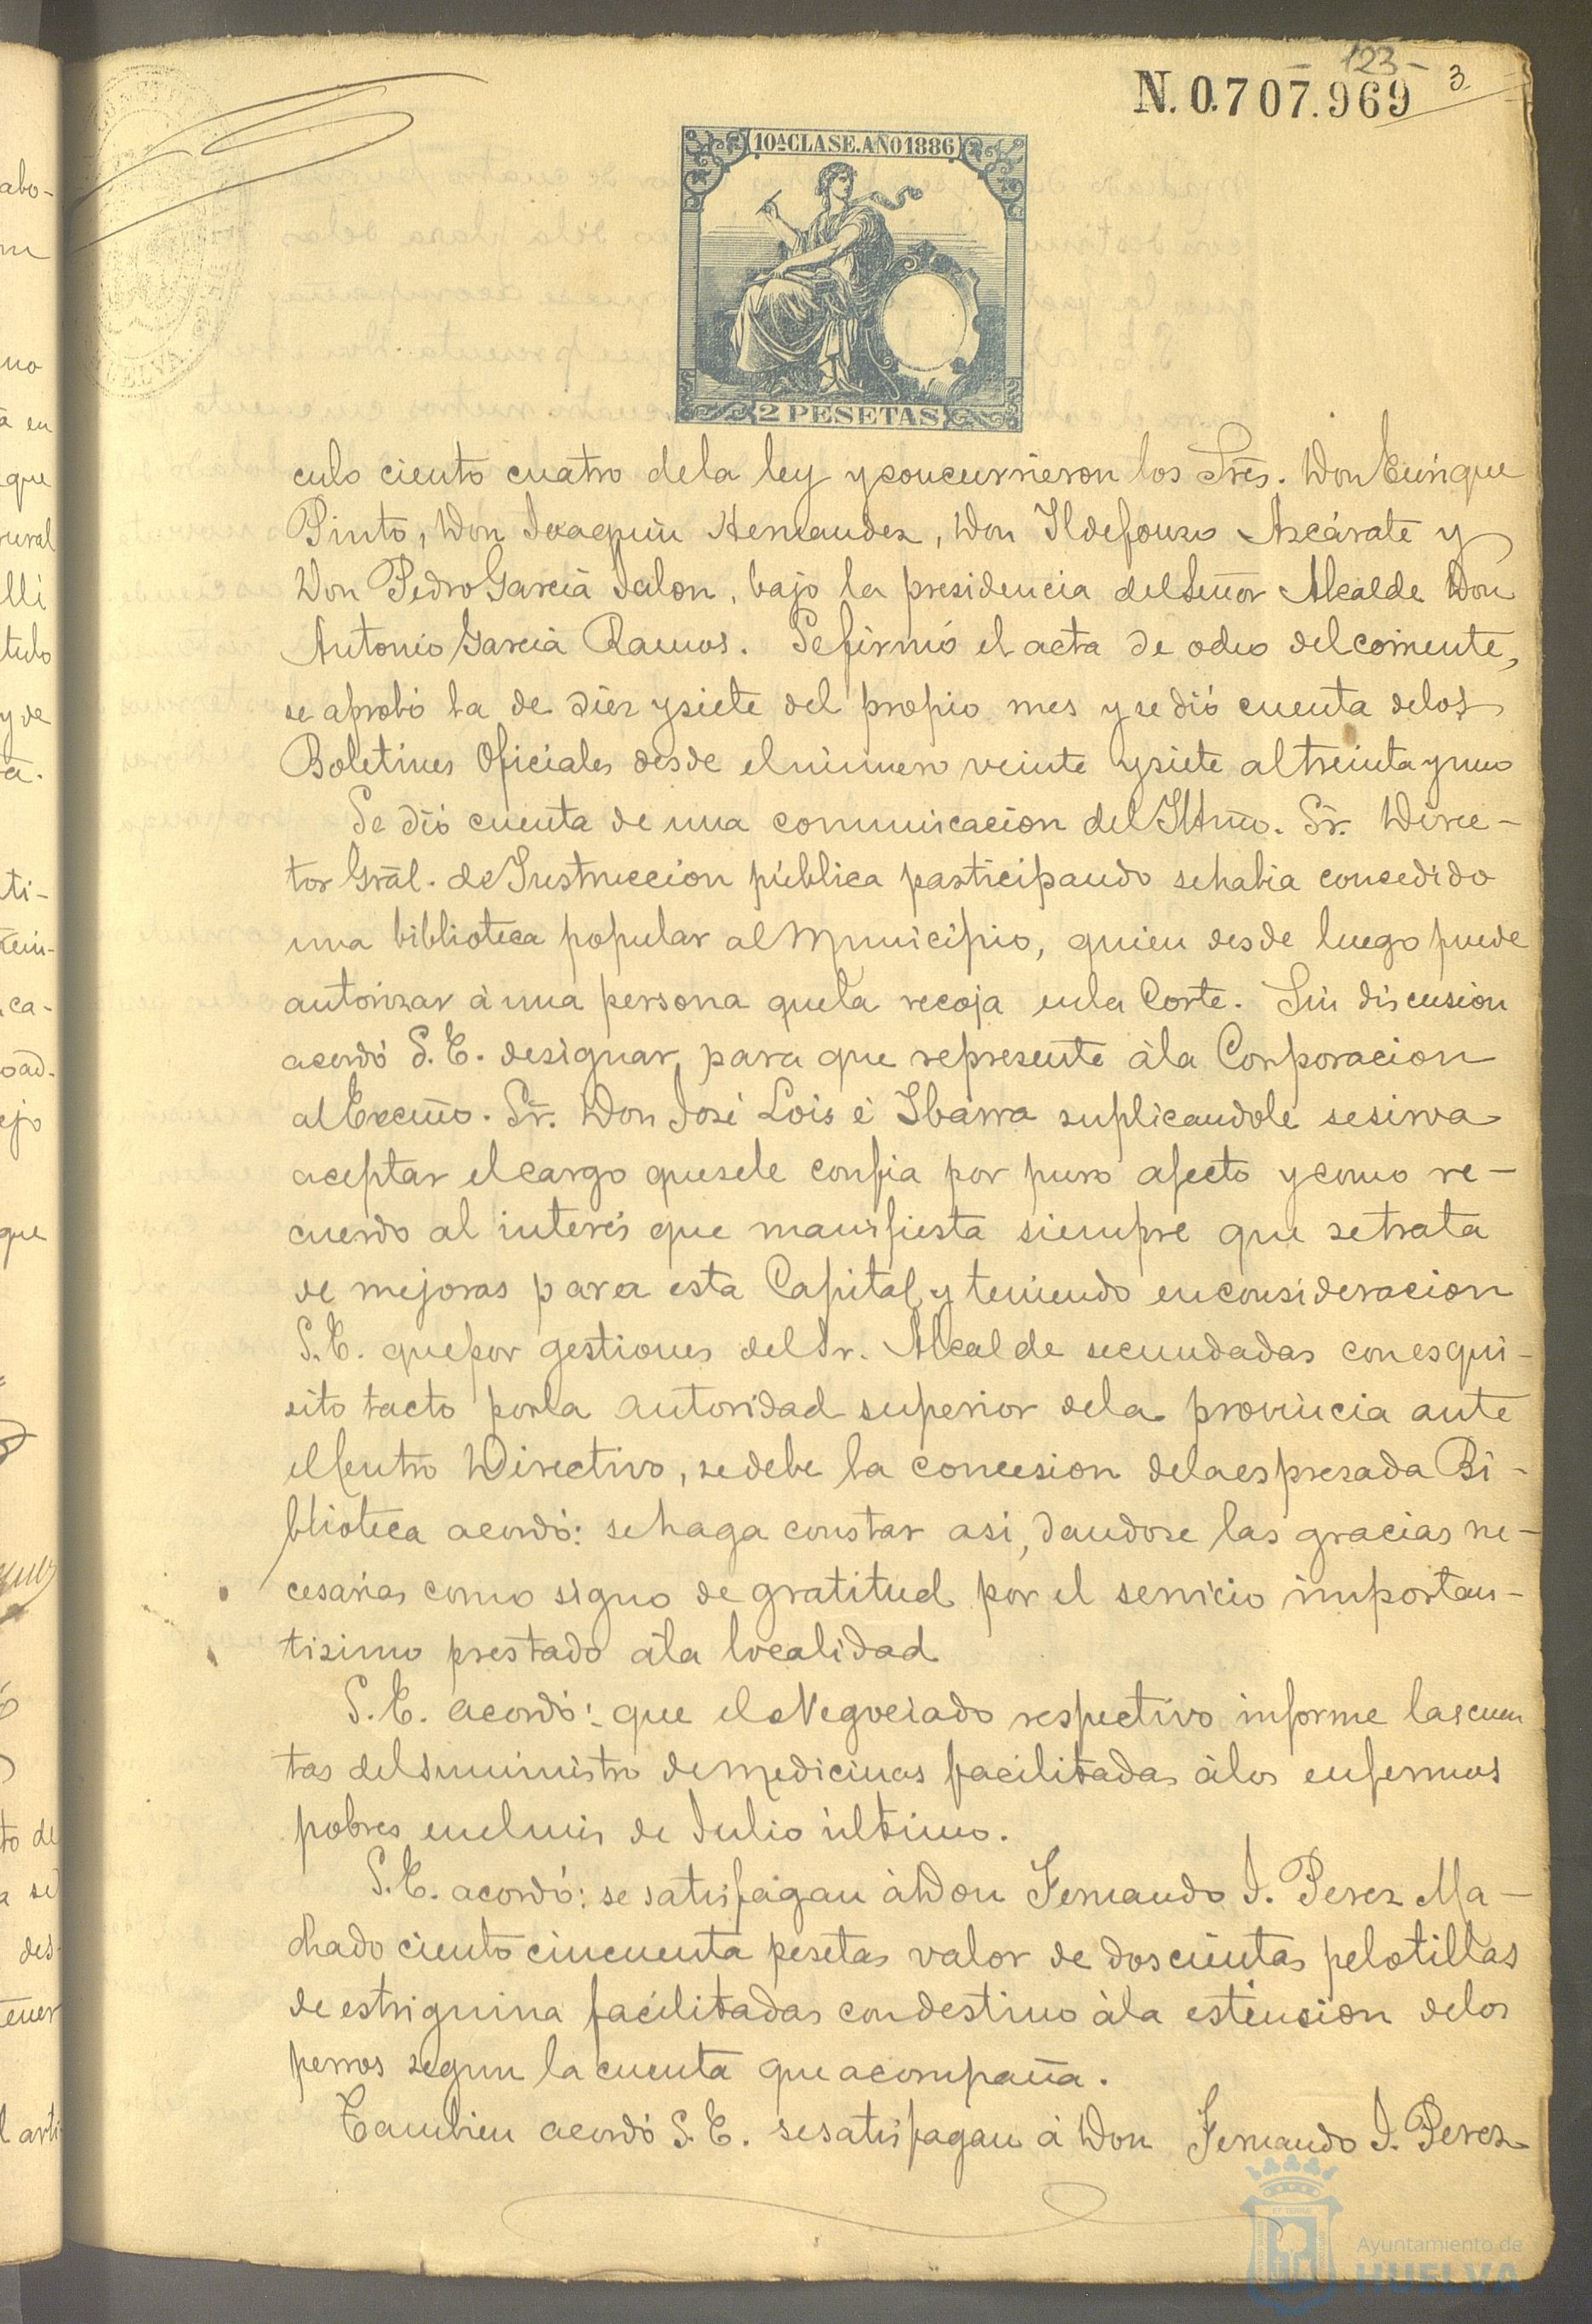 123-
N. 0.707.969 3
10ª CLASE. AÑO 1886
2 PESETAS
culo ciento cuatro de la ley y concurrieron los Sres. Don Enrique
Pinto, Don Joaquin Hernandez, Don Ildefonso Azcárate y
Don Pedro Garcia Jalon, bajo la presidencia del Señor Alcalde Don
Antonio Garcia Ramos. Se firmó el acta de ocho del corriente,
se aprobó la de diez y siete del propio mes y se dió cuenta de los
Boletines Oficiales desde el número veinte y siete al treinta y uno
Se dió cuenta de una comunicacion del Iltmo. Sr. Direc-
tor Gral. de Instruccion pública participando se habia concedido
una biblioteca popular al Municipio, quien desde luego puede
autorizar à una persona que la recoja en la Corte. Sin discusion
acordó S. E. designar para que represente à la Corporacion
al Excmo. Sr. Don José Lois é Ibarra suplicandole se sirva
aceptar el cargo que se le confia por puro afecto y como re-
cuerdo al interés que manifiesta siempre que se trata
de mejoras para esta Capital y teniendo en consideracion
S. E. que por gestiones del Sr. Alcalde secundadas con esqui-
sito tacto por la autoridad superior de la provincia ante
el Centro Directivo, se debe la concesion de la espresada Bi-
blioteca acordó: se haga constar asi, dandose las gracias ne-
cesarias como signo de gratitud por el servicio importan-
tisimo prestado à la localidad
S. E. acordó: que el Negociado respectivo informe las cuen
tas del suministro de medicinas facilitadas à los enfermos
pobres en el mes de Julio último.
S. E. acordó: se satisfagan à Don Fernando J. Perez Ma-
chado ciento cincuenta pesetas valor de doscientas pelotillas
de estriguina facilitadas con destino à la estincion de los
perros segun la cuenta que acompaña.
Tambien acordó S. E. se satisfagan à Don Fernando J. Perez
Ayuntamiento de
HUELVA